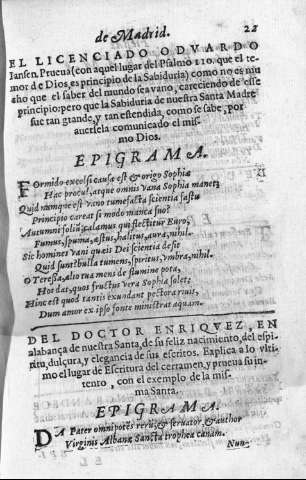 de Madrid. 22
EL LICENCIADO ODVARDO
Iansen. Prueua (con aquel lugar del Psalmo 110. que el te-
mor de Dios, es principio de la Sabiduria) como no es mu
cho que el saber del mundo sea vano, careciendo de esse
principio: pero que la Sabiduria de nuestra Santa Madre
fue tan grande, y tan estendida, como se sabe, por
auersela comunicado el mis-
mo Dios.
EPIGRAMA.
Formido excelsi causa est & origo Sophiæ
Hac procul, atque omnis vana Sophia manet;
Quid namque est vano tumefacta scientia fastu
Principio careat si modo manca suo?
Autumni foliũ, calamus qui flectitur Euro,
Fumus, spuma, æstus, halitus, aura, nihil.
Sic homines vani queis Dei scientia deest
Quid sunt? bulla tumens, spiritus, vmbra, nihil.
O Teresia, alto tua mens de flumine pota,
Hoc dat, quos fructus vera Sophia solet;
Hinc est quod tantis exundant pectora riuis,
Dum amor ex ipso fonte ministrat aquam.
DEL DOCTOR ENRIQVEZ, EN
alabança de nuestra Santa, de su feliz nacimiento, del espi-
ritu, dulçura, y elegancia de sus escritos. Explica a lo vlti-
mo el lugar de Escritura del certamen, y prueua su in-
tento, con el exemplo de la mis-
ma Santa.
EPIGRAMA.
DA Pater omnipotẽs rerũ, & seruator, & author
Virginis Albanæ Sancta trophea canam.
Nun-